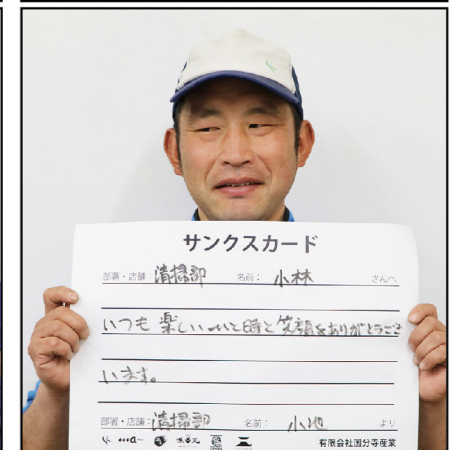 サンクスカード
部署・店舗：清掃部 名前：小林 さんへ
いつも楽しいひと時と笑顔をありがとうござ
います。
部署・店舗：清掃部 名前：小池 より
有限会社国分寺産業